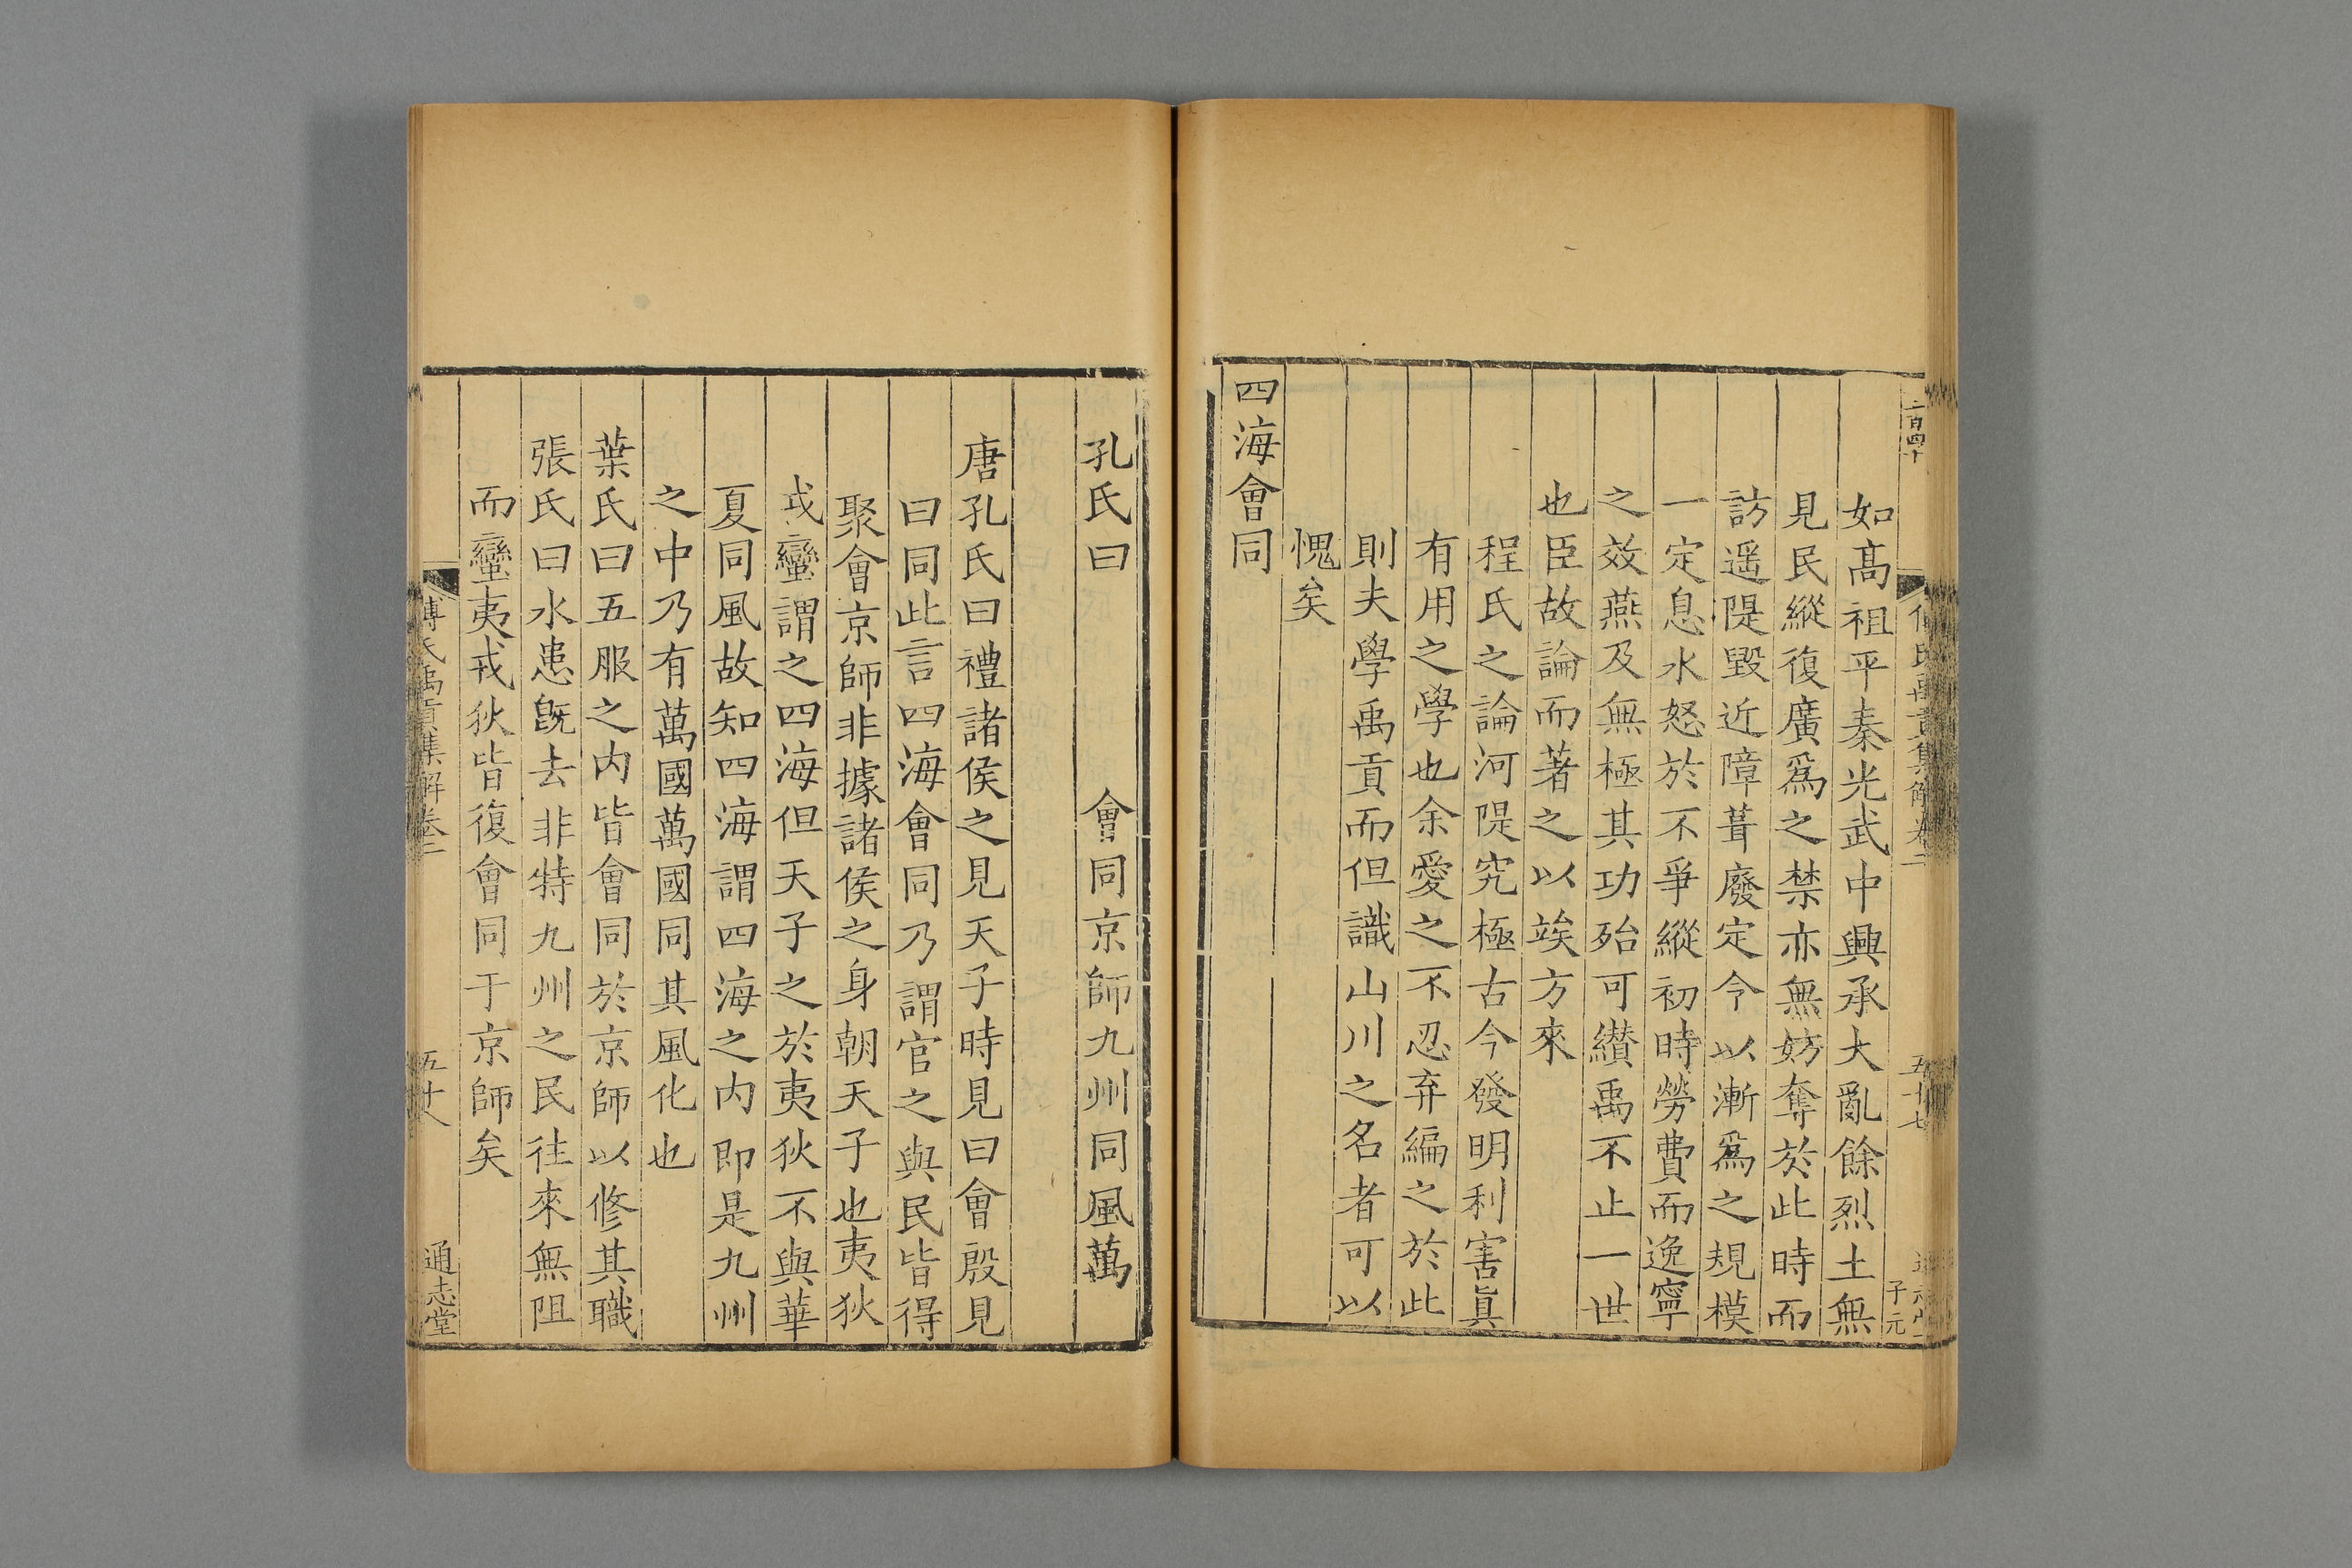 二百四十
如髙祖平秦光武中興承大亂餘烈土無
見民縱復廣爲之禁亦無妨奪於此時而
訪遥隄毀近障葺廢定令以漸爲之規模
一定息水怒於不爭縱初時勞費而逸寧
之效燕及無極其功殆可纉禹不止一世
也臣故論而著之以竢方來
程氏之論河隄究極古今發明利害眞
有用之學也余愛之不忍弃編之於此
則夫學禹貢而但識山川之名者可以
愧矣
四海會同
五十七
子元
孔氏曰 會同京師九州同風萬
唐孔氏曰禮諸侯之見天子時見曰會殷見
曰同此言四海會同乃謂官之與民皆得
聚會京師非據諸侯之身朝天子也夷狄
戎蠻謂之四海但天子之於夷狄不與華
夏同風故知四海謂四海之内即是九州
之中乃有萬國萬國同其風化也
葉氏曰五服之内皆會同於京師以修其職
張氏曰水患旣去非特九州之民往來無阻
而蠻夷戎狄皆復會同于京師矣
傅氏禹貢集解卷二
五十八
通志堂